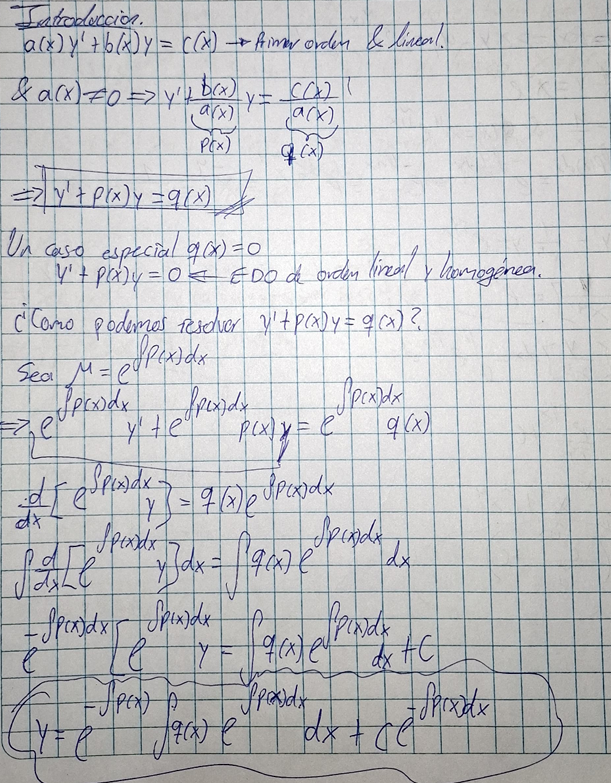 Introducción.
a(x) y' + b(x) y = c(x) → Primer orden & lineal.
& a(x) ≠ 0 ⟹ y' + b(x)/a(x) y = c(x)/a(x)
p(x) q(x)
⟹ y' + p(x) y = q(x)
Un caso especial q(x) = 0
y' + p(x) y = 0 ⟸ EDO de orden lineal y homogénea.
¿Como podemos resolver y' + p(x) y = q(x)?
Sea μ = e^{∫p(x)dx}
⟹ e^{∫p(x)dx} y' + e^{∫p(x)dx} p(x) y = e^{∫p(x)dx} q(x)
d/dx [e^{∫p(x)dx} y] = q(x) e^{∫p(x)dx}
∫ d/dx [e^{∫p(x)dx} y] dx = ∫ q(x) e^{∫p(x)dx} dx
e^{-∫p(x)dx} [e^{∫p(x)dx} y = ∫ q(x) e^{∫p(x)dx} dx + C
y = e^{-∫p(x)} ∫ q(x) e^{∫p(x)dx} dx + C e^{-∫p(x)dx}